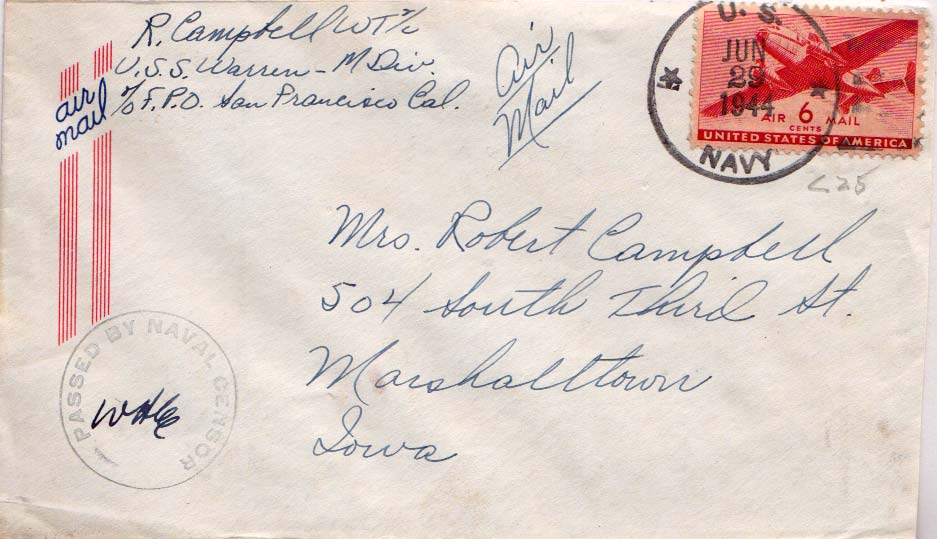 R. Campbell WT 2/c
U.S.S. Warren - M Div.
℅ F.P.O. San Francisco Cal.
air
mail
Air
Mail
U. S.
JUN
29
1944
NAVY
AIR 6 MAIL
CENTS
UNITED STATES OF AMERICA
C25
Mrs. Robert Campbell
504 South Third St.
Marshalltown
Iowa
PASSED BY NAVAL CENSOR